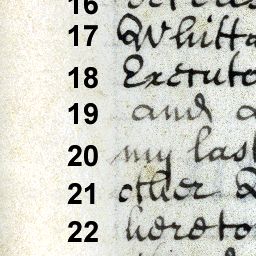 16
17 Whitta
18 Executo
19 and
20 my last
21 other
22 hereto